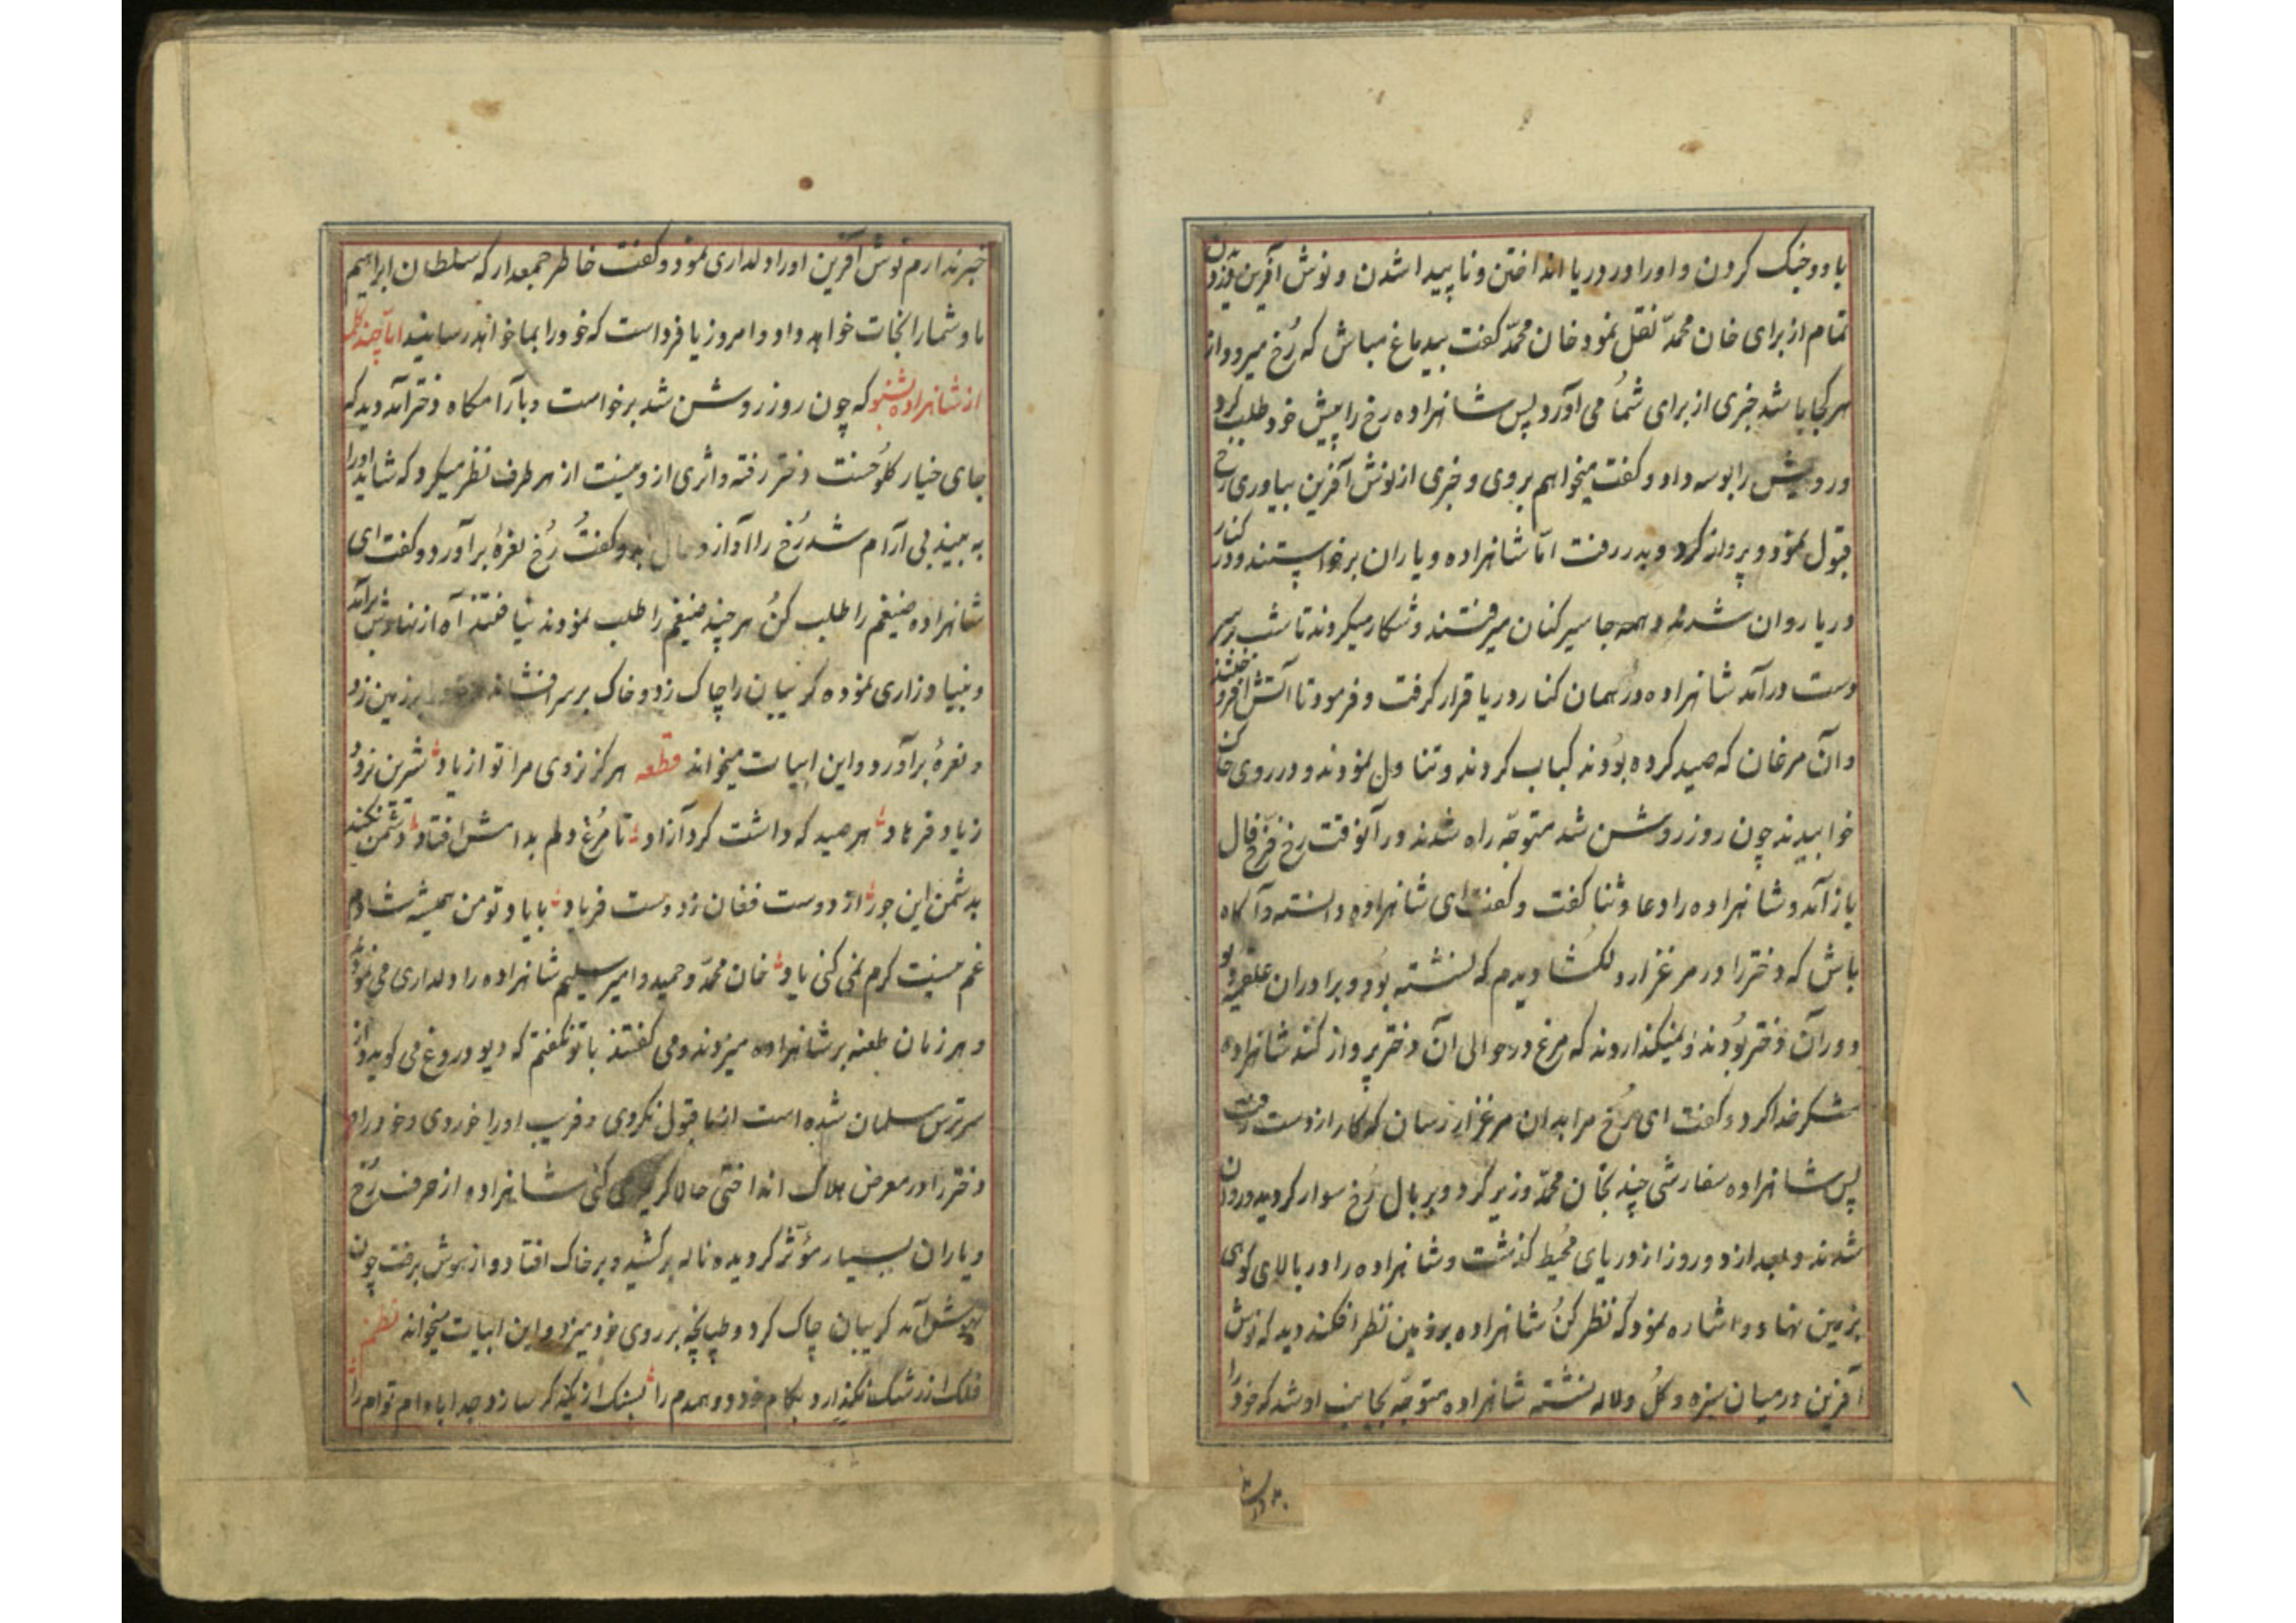 با دو جنک کردن و او را در دریا انداختن و ناپیدا شدن و نوش آفرین
تمام از برای خان محمّد نقل نمود خان محمّد کفت بیدماغ مباش که رُخ میرود از
هر کجا باشد خبری از برای شُما می آورد پس شاهزاده رخ را پیش خود طلب کرد
و رویش را بوسه داد و کفت میخواهم بروی و خبری از نوش آفرین بیاوری رخ
قبول نمود و پرواز کرد و بدر رفت امّا شاهزاده و یاران برخواستند و در کنار
دریا روان شدند و همه جا سیر کنان میرفتند و شکار میکردند تا شب بر سر
دست درآمد شاهزاده در همان کنار دریا قرار کرفت و فرمود تا آتش افروختند
و آن مرغان که صید کرده بوُدند کباب کردند و تناول نمودند و در روی خاک
خوابیدند چون روز روشن شد متوجّه راه شدند در آنوقت رخ فرّخ فال
باز آمد و شاهزاده را دعا و ثنا کفت و کفت ای شاهزاده دانسته و آکاه
باش که دختر را در مرغزار دلکشا دیدم که نشسته بوُد و برادران علقمه
دور آن دختر بوُدند و نمیکذاردند که مرغ در حوالی آن دختر پرواز کند شاهزاده
شکر خدا کرد و کفت ای رُخ مرا بدان مرغزار رسان که کار از دست رفت
پس شاهزاده سفارشی چند بخان محمّد وزیر کرد و بر بال رُخ سوار کردید و روان
شدند و بعد از دو روز از دریای مُحیط کذشت و شاهزاده را در بالای کوهی
بزمین نهاد و اشاره نمود که نظر کنُ شاهزاده بروی زمین نظر افکند دید که نوش
آفرین در میان سبزه و کلُ و لاله نشسته شاهزاده متوجّه بجانب او شد که خود را
خبر ندارم نوش آفرین او را دلداری نمود و کفت خاطر جمعدار که سلطان ابراهیم
ما و شما را نجات خواهد داد و امروز یا فرداست که خود را بما خواهد رسانید امّا چند کلمه
از شاهزاده بشنو که چون روز روشن شد برخواست و بآرامکاه دختر آمد دید که
جای خیار کلوُخست و دختر رفته و اثری ازو نیست از هر طرف نظر میکرد که شاید او را
به بیند بی آرام شد رُخ را آواز و کفت رُخ نعرهٔ برآورد و کفت ای
شاهزاده ضیغم را طلب کنُ هر چند ضیغم را طلب نمودند نیافتند آه از نهادش برآمد
و بنیاد زاری نموده کریبان را چاک زد و خاک بر سر افشاند و خود را بر زمین زد
و نعرهٔ برآورد و این ابیات میخواند قطعه هرکز نروی مرا تو از یاد شیرین نرود
زیاد فرهاد هر صید که داشت کرد آزاد تا مُرغ دلم بدامش افتاد دشمن نکند
بدشمن این جور از دوست فغان ز دوست فریاد با یاد تو من همیشه شادم
غم نیست کرم نمی کنی یاد خان محمّد و حمید و امیر سلیم شاهزاده را دلداری می نمودند
و هر زمان طعنه بر شاهزاده میزدند و می کفتند با تو نکفتم که دیو دروغ می کوید و از
سر ترس مسلمان شده است از ما قبول نکردی و فریب او را خوردی و خود را و
دختر را در معرض هلاک انداختی حالا کریه می کنی شاهزاده از حرف رُخ
و یاران بسیار مؤثّر کردیده ناله بر کشید و بر خاک افتاد و از هوش برفت چون
بهوش آمد کریبان چاک کرد و طپانچه بر روی خود میزد و این ابیات میخواند نظم
فلک از رشک نکذارد بکام خود دو همدم را